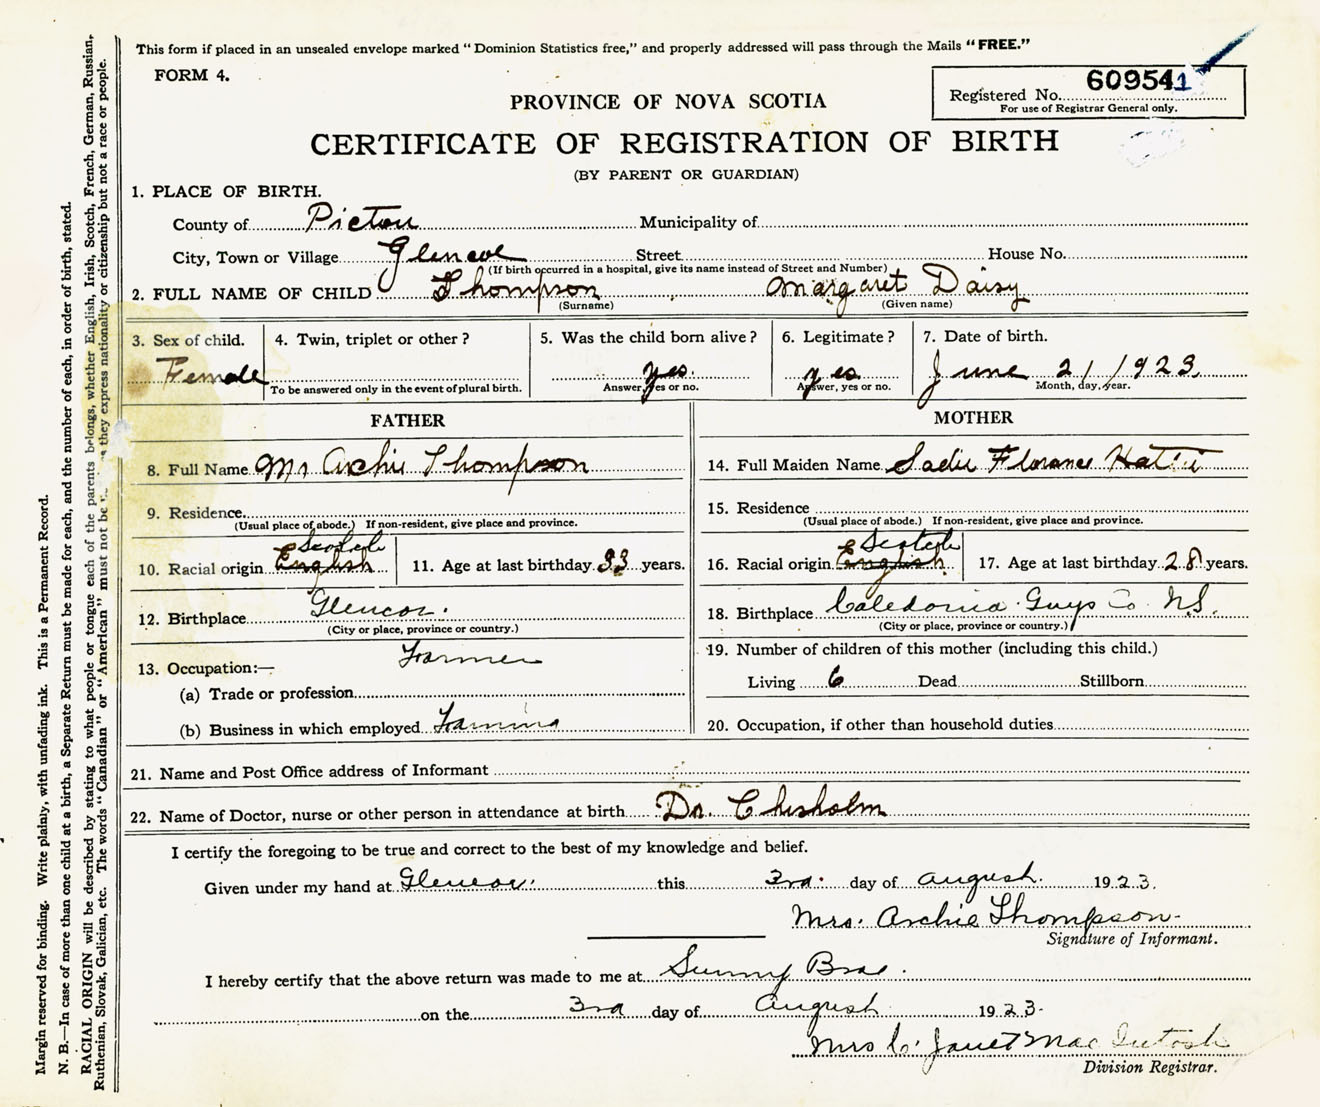 This form if placed in an unsealed envelope marked "Dominion Statistics free," and properly addressed will pass through the Mails "FREE."
FORM 4.
Registered No. 609541
For use of Registrar General only.
PROVINCE OF NOVA SCOTIA
CERTIFICATE OF REGISTRATION OF BIRTH
(BY PARENT OR GUARDIAN)
1. PLACE OF BIRTH.
County of Pictou Municipality of
City, Town or Village Glencoe Street House No.
(If birth occurred in a hospital, give its name instead of Street and Number)
2. FULL NAME OF CHILD Thompson Margaret Daisy
(Surname) (Given name)
3. Sex of child. 4. Twin, triplet or other? 5. Was the child born alive? 6. Legitimate? 7. Date of birth.
Female yes. yes June 21 1923.
To be answered only in the event of plural birth. Answer, yes or no. Answer, yes or no. Month, day, year.
FATHER
8. Full Name Mr Archie Thompson
9. Residence
(Usual place of abode.) If non-resident, give place and province.
Scotch
10. Racial origin English 11. Age at last birthday 33 years.
12. Birthplace Glencoe.
(City or place, province or country.)
13. Occupation:— Farmer
(a) Trade or profession
(b) Business in which employed Farming
MOTHER
14. Full Maiden Name Sadie Florance
15. Residence
(Usual place of abode.) If non-resident, give place and province.
Scotch
16. Racial origin English 17. Age at last birthday 28 years.
18. Birthplace Caledonia Guys Co. N.S.
(City or place, province or country.)
19. Number of children of this mother (including this child.)
Living 6 Dead Stillborn
20. Occupation, if other than household duties
21. Name and Post Office address of Informant
22. Name of Doctor, nurse or other person in attendance at birth Dr. Chisholm
I certify the foregoing to be true and correct to the best of my knowledge and belief.
Given under my hand at Glencoe. this 3rd. day of August. 1923.
Mrs. Archie Thompson
Signature of Informant.
I hereby certify that the above return was made to me at Sunny Brae.
on the 3rd day of August 1923.
Mrs C. Janet MacIntosh
Division Registrar.
Margin reserved for binding. Write plainly, with unfading ink. This is a Permanent Record.
N. B.—In case of more than one child at a birth, a Separate Return must be made for each, and the number of each, in order of birth, stated.
RACIAL ORIGIN will be described by stating to what people or tongue each of the parents belongs, whether English, Irish, Scotch, French, German, Russian,
Ruthenian, Slovak, Galician, etc. The words "Canadian" or "American" must not be they express nationality or citizenship but not a race or people.